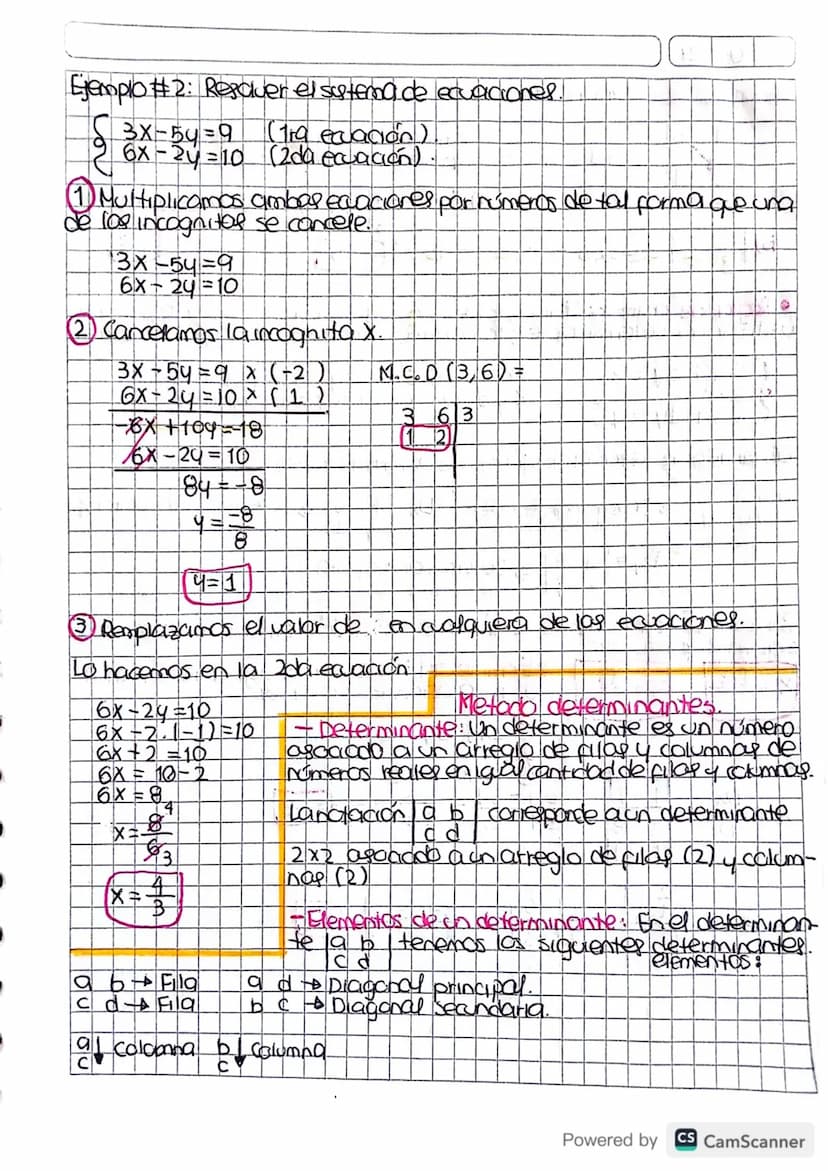 Ejemplo #2: Resolver el sistema de ecuaciones.
3x-5y=9 (1ra ecuación).
6x-2y=10 (2da ecuación).
① Multiplicamos ambas ecuaciones por números de tal forma que una
de las incognitas se cancele.
3x-5y=9
6x-2y=10
② Cancelamos la incognita x.
3x-5y=9 x (-2)
6x-2y=10 x (1)
-6x+10y=-18
6x-2y=10
8y=-8
y=-8/8
y=1
M.C.D (3,6)=
3 6|3
1 2|
③ Remplazamos el valor de: en cualquiera de las ecuaciones.
Lo hacemos en la 2da ecuación
6x-2y=10
6x-2.(-1)=10
6x+2=10
6x=10-2
6x=8
x=8/6 4/3
x=4/3
Metodo determinantes.
- Determinante: Un determinante es un número
asociado a un arreglo de filas y columnas de
números reales en igual cantidad de filas y columnas.
La notación |a b| corresponde a un determinante
|c d|
2x2 asociado a un arreglo de filas (2) y colum-
nas (2)
- Elementos de un determinante: En el determinan-
te |a b| tenemos los siguientes determinantes.
|c d| elementos:
a b → Fila a d → Diagonal principal.
c d → Fila b c → Diagonal secundaria.
a↓ columna b↓ columna
c c
Powered by CS CamScanner